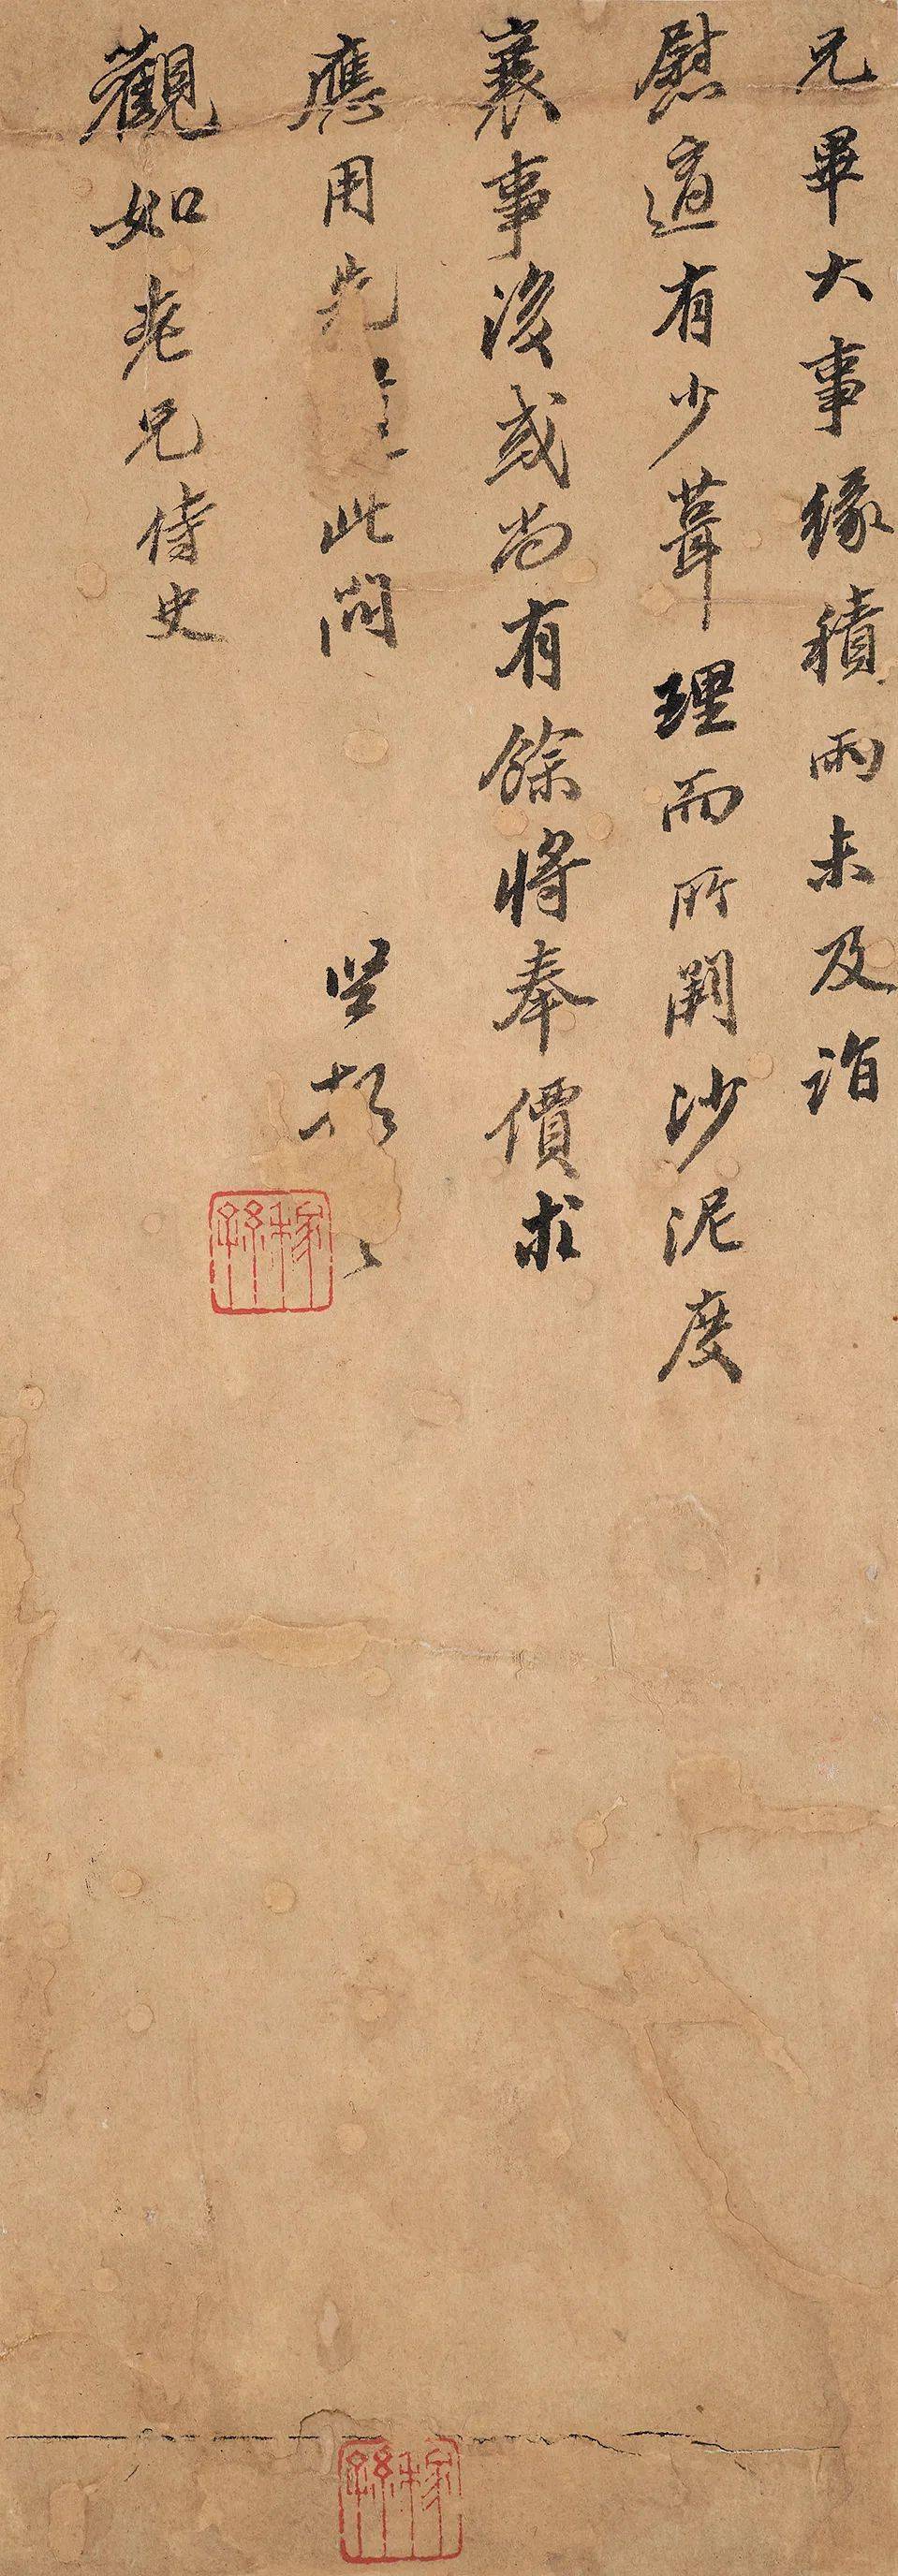 兄畢大事緣積雨未及詣
慰適有少葺理而所闕沙泥度
襄事後或尚有餘將奉價求
應用先此問
堅頓
觀如老兄侍史